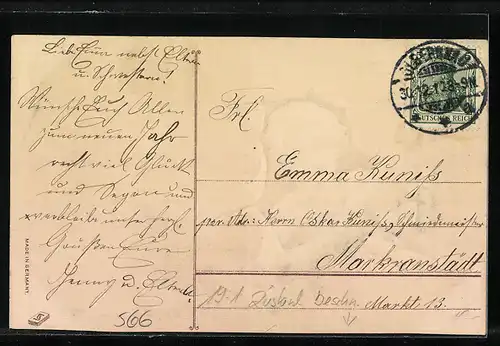 Liebe Emma nebst Eltern
u. Schwestern!
Wünsche Euch Allen
zum neuen Jahr
recht viel Glück
und Segen und
verbleibe unter herzl.
Grüßen Eure
Jenny u. Eltern.
MADE IN GERMANY.
566
30.12.10.8-9N
DEUTSCHES REICH
Frl.
Emma Kuniss
per. Adr.: Herrn Oskar Kuniss, Schmiedemeister
Markranstädt
Markt 13.
19-1